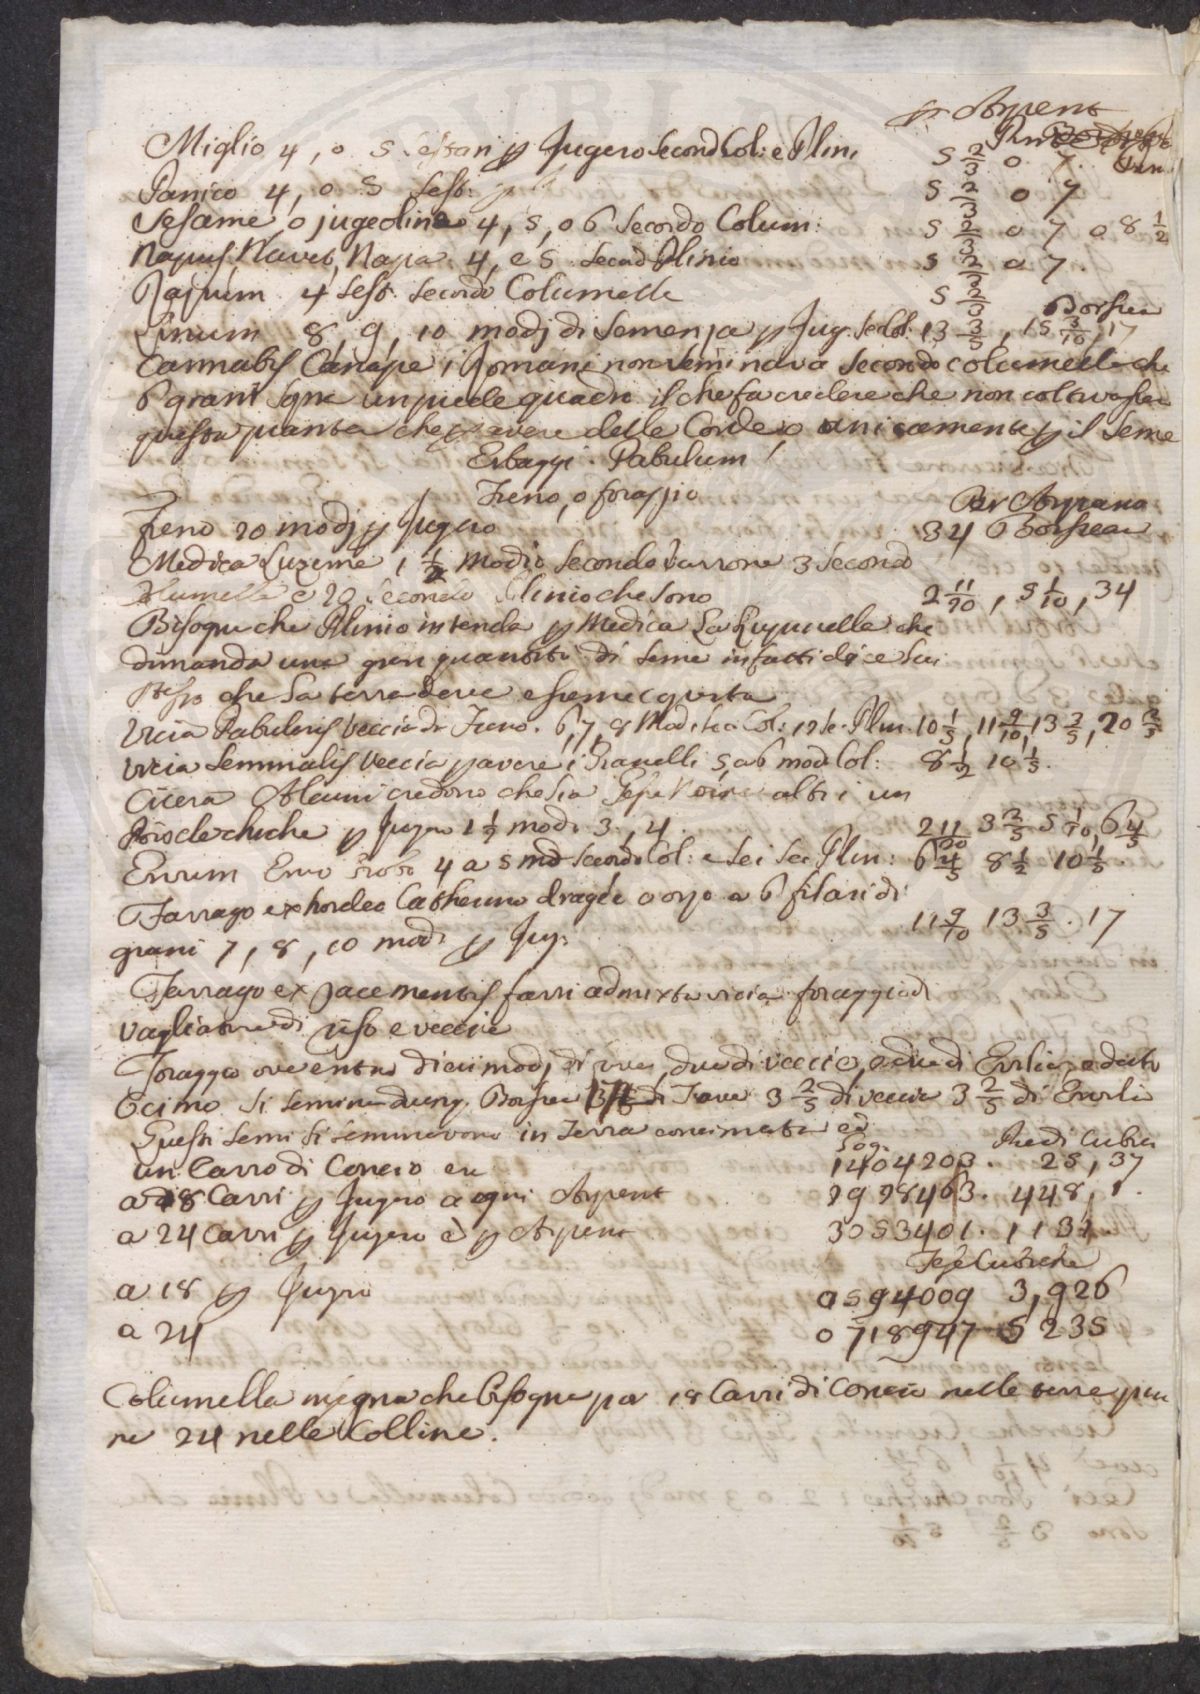 p Arpent
Miglio 4, o 5 sestari p Jugero second Col: e Plini 5 2/3 o 7.
Panico 4, o 5 sest: 5 2/3 o 7
Sesame, o jugeolina 4, 5, o 6 secondo Colum: 5 2/3 o 7 o 8 1/2
Napus Navet, Napa. 4, e 5 secod Plinio 5 2/3 o 7
Rapum 4 sest. secondo Columella 5 2/3
Boisseau
Linum 8, 9, 10 modj di semenza p Jug. se Col. 13 3/5, 15 3/10, 17
Cannabis Canape i Romani non semi nava secondo columella che
6 grani sopra un piede quadro il che fa credere che non coltivasser
questa pianta che p avere delle Corde o unicamente p il seme
Erbaggi. Pabulum
Freno, o foraggio Per Arpana
Freno 20 modj p Jugero 34 Boisseau
Medica Luzerne 1 1/2 modio secondo varrone 3 secondo
Columella e 20 secondo Plinio che sono 2 11/20, 5 1/10, 34
Bisogna che Plinio intenda p Medica La Lupinella che
dimanda una gran quantità di seme infatti dice lui
stesso che la terra deve essernecoperta
Vicia Pabularis veccia da Freno. 6, 7, 8 Mod. sec. Col: 12 se. Plin. 10 1/5, 11 9/10, 13 3/5, 20 2/5
Vicia seminalis veccia p avere i Granelli 5, a 6 mod Col: 8 1/2 10 1/5.
Cicera Alcuni credono che sia Gesse Noire altri un
Pois de chiche p Jugero 1 1/2 modi 3, 4. 2 11/20 3 2/5 5 1/10, 6 4/5
Ervum Ervo 4 a 5 md secondo Col: e sei sec Plin: 6 4/5 8 1/2 10 1/5.
Farrago ex hordeo Catherino dragée o orzo a 6 filari di
grani 7, 8, 10 modi p Jug: 11 9/10 13 3/5. 17
Farrago ex farri admixta vicia foraggio di
vagliatura di riso e veccie
Foraggio ove entra dieci modj di due di veccia, e due di Ervilia, e detto
Ocimo. Si semina dunq. Boisseu 17 di Fave 3 2/5 di veccia 3 2/5 di Ervilia
Questi semi si seminavono in terra concimata ed
Log. Piedi Cubici
un Carro di Concio era 1404203. 25, 37
a 18 Carri p Jugero a ogni Arpent 2928463. 448, 1.
a 24 Carri p Jugero è p Arpent 3053401. 1131
Tese Cubiche
a 18 p Jugero 0594009 3,926
a 24 0718947 5 235
Columella insegna che bisogna por 18 Carri di Concio nelle terre pia
ne 24 nelle Colline.